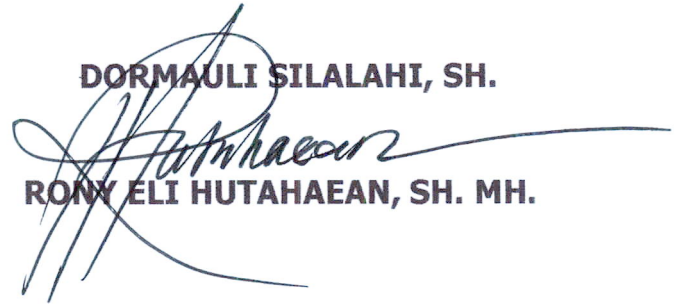 DORMAULI SILALAHI, SH.
Hutahaean
RONY ELI HUTAHAEAN, SH. MH.